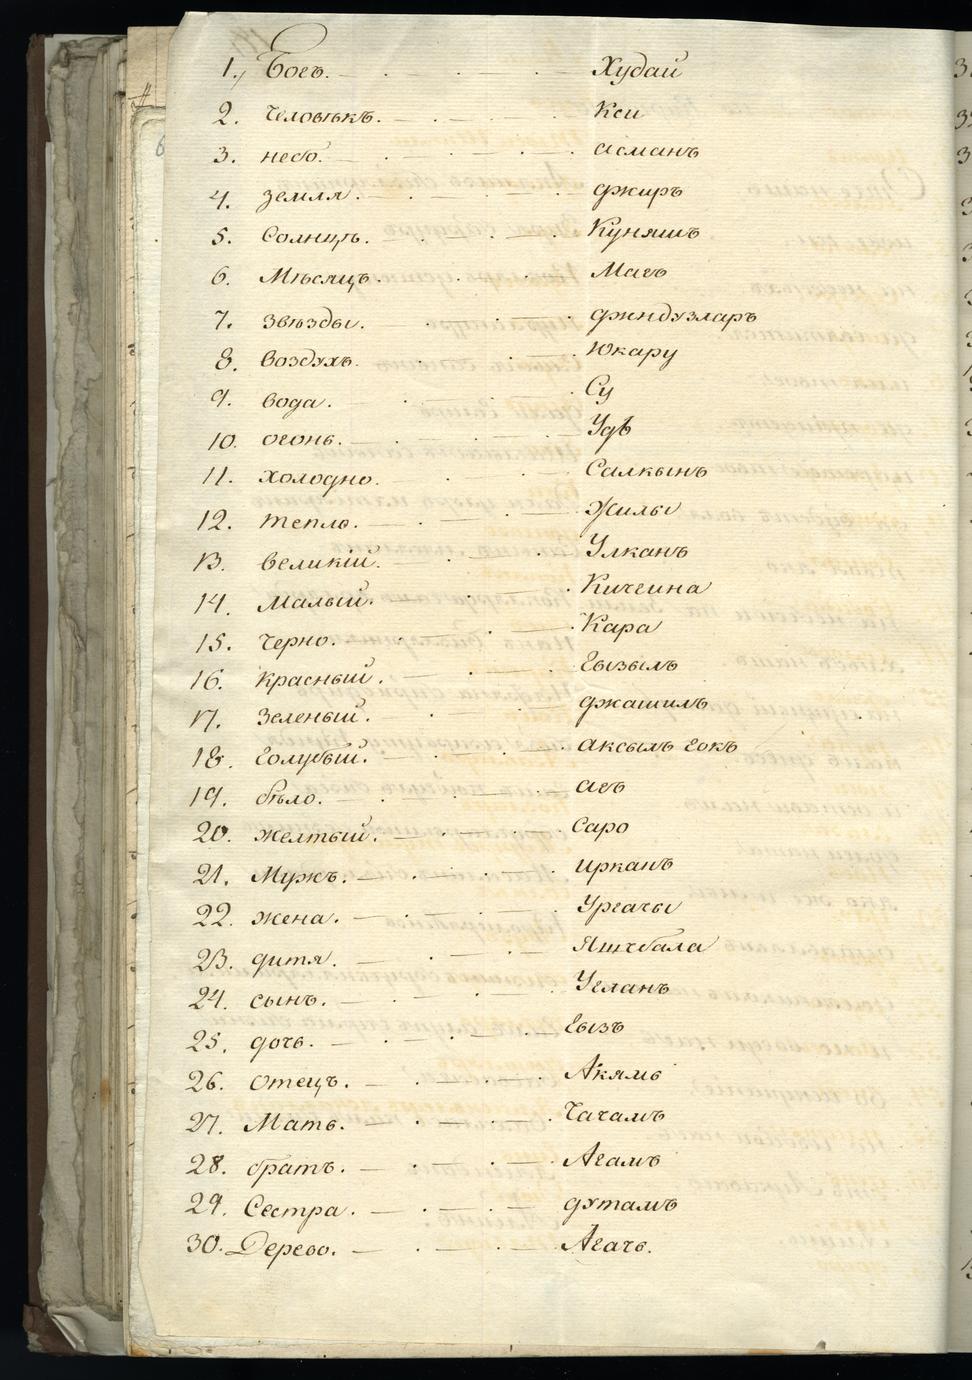 1. Богъ. Худай
2. Человѣкъ. Кси
3. небо. асманъ
4. Земля. джиръ
5. Солнцъ. Куняшъ
6. Мѣсяцъ. Магъ
7. Звѣзды. джндузларъ
8. воздухъ. Юкару
9. вода. Су
10. огонь. Удъ
11. холодно. Салкынъ
12. тепло. Жилы
13. великій. Улканъ
14. Малый. Кичеина
15. Черно. Кара
16. Красный. Гызылъ
17. Зеленый. джашилъ
18. Голубый. аксылъ гокъ
19. бѣло. агъ
20. желтый. Саро
21. Мужъ. ирканъ
22. жена. Ургачы
23. дитя. Яшчбала
24. сынъ. Угланъ
25. дочь. Гызъ
26. отецъ. Акямъ
27. Мать. Чачамъ
28. братъ. Агамъ
29. Сестра. духтамъ
30. Дерево. Агачь.